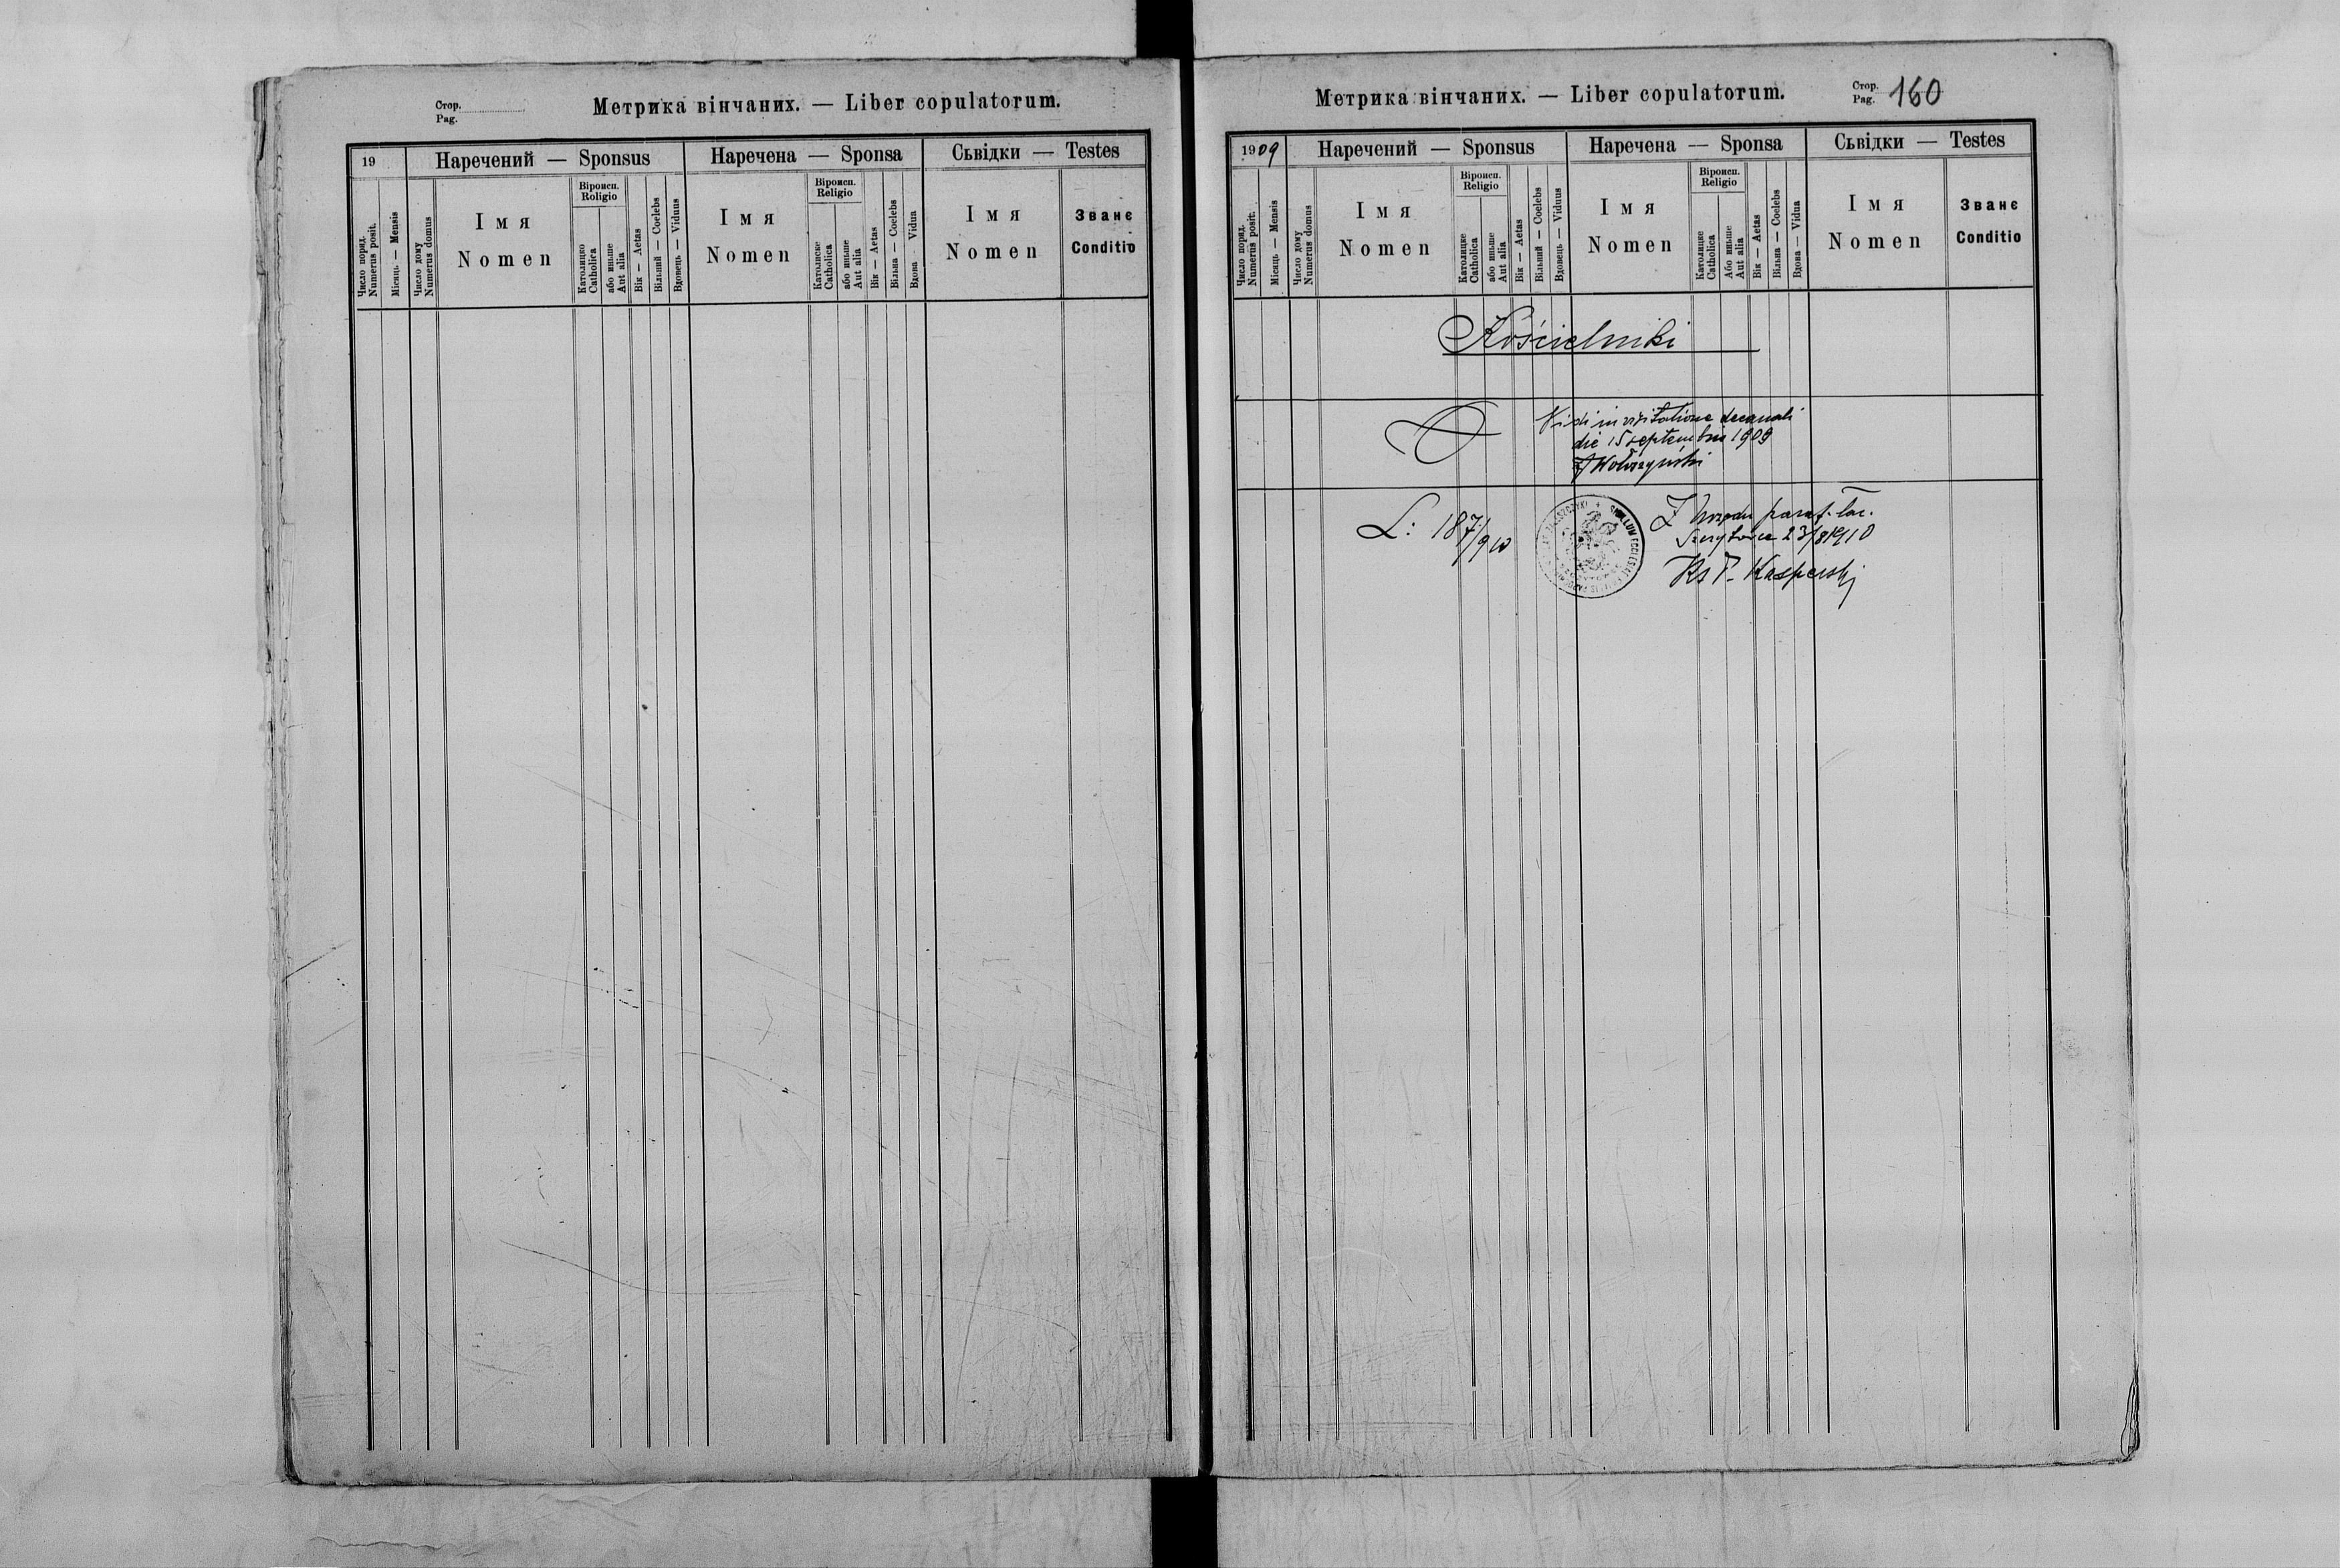 Стор.
Pag.
Метрика вінчаних. — Liber copulatorum.
19
Наречений — Sponsus
Наречена — Sponsa
Сьвідки — Testes
Число поряд.
Numerus posit.
Місяць — Mensis
Число дому
Numerus domus
Імя
Nomen
Віроисп.
Religio
Католицке
Catholica
або иньше
Aut alia
Вік — Aetas
Вільний — Coelebs
Вдовець — Viduus
Імя
Nomen
Віроисп.
Religio
Католиске
Catholica
або иньше
Aut alia
Вік — Aetas
Вільна — Coelebs
Вдова — Vidua
Імя
Nomen
Званє
Conditio
Метрика вінчаних. — Liber copulatorum.
Стор.
Pag. 160
1909
Наречений — Sponsus
Наречена — Sponsa
Сьвідки — Testes
Число поряд.
Numerus posit.
Місяць — Mensis
Число дому
Numerus domus
Імя
Nomen
Віроисп.
Religio
Католицке
Catholica
або иньше
Aut alia
Вік — Aetas
Вільний — Coelebs
Вдовець — Viduus
Імя
Nomen
Віроисп.
Religio
Католицке
Catholica
Або иньше
Aut alia
Вік — Aetas
Вільна — Coelebs
Вдова — Vidua
Імя
Nomen
Званє
Conditio
Kościelniki
Vidi in visitatione decanali
die 15 septembris 1909
L: 187/910
SIGILLUM ECCLESIAE
Z Urzędu paraf. łac.
23/8 1910
Ks P. Kasperski